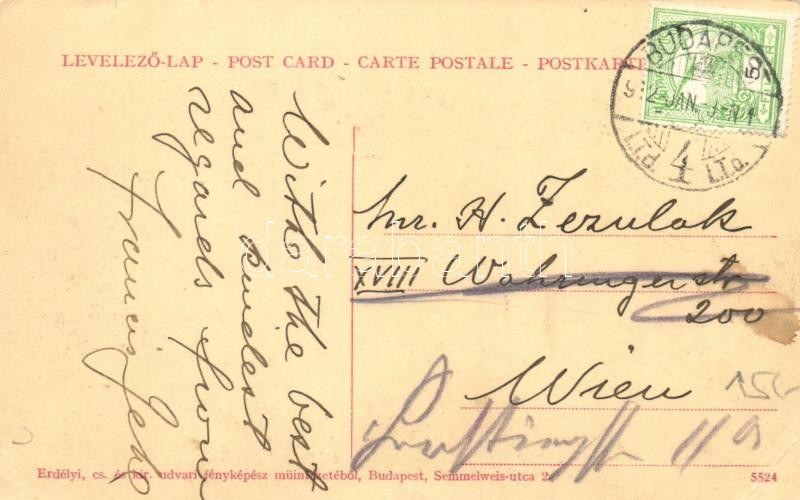 LEVELEZŐ-LAP - POST CARD - CARTE POSTALE - POSTKARTE
BUDAPEST
912 JAN
4
With the best
and kindest
regards from
Francis
Mr. H. Zezulak
XVIII Währingerstr
200
Wien
119
Erdélyi, cs. és kir. udvari fényképész műintézetéből, Budapest, Semmelweis-utca 2.
5524
darabanth